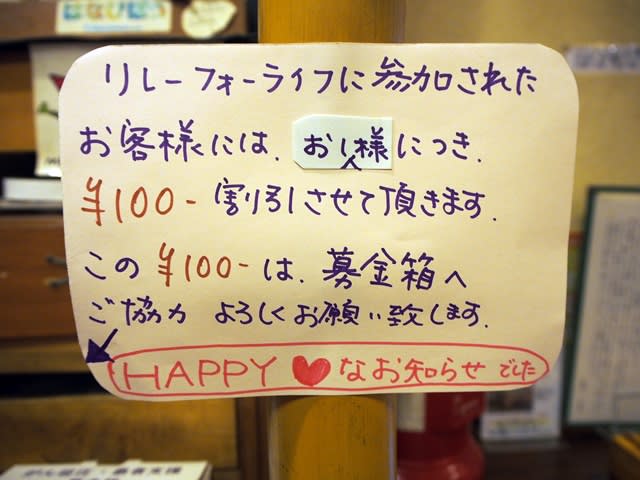 はなびし
リレーフォーライフに参加された
お客様には、お一人様につき、
¥100-割引させて頂きます。
この¥100-は、募金箱へ
ご協力 よろしくお願い致します。
HAPPY♥なお知らせでした